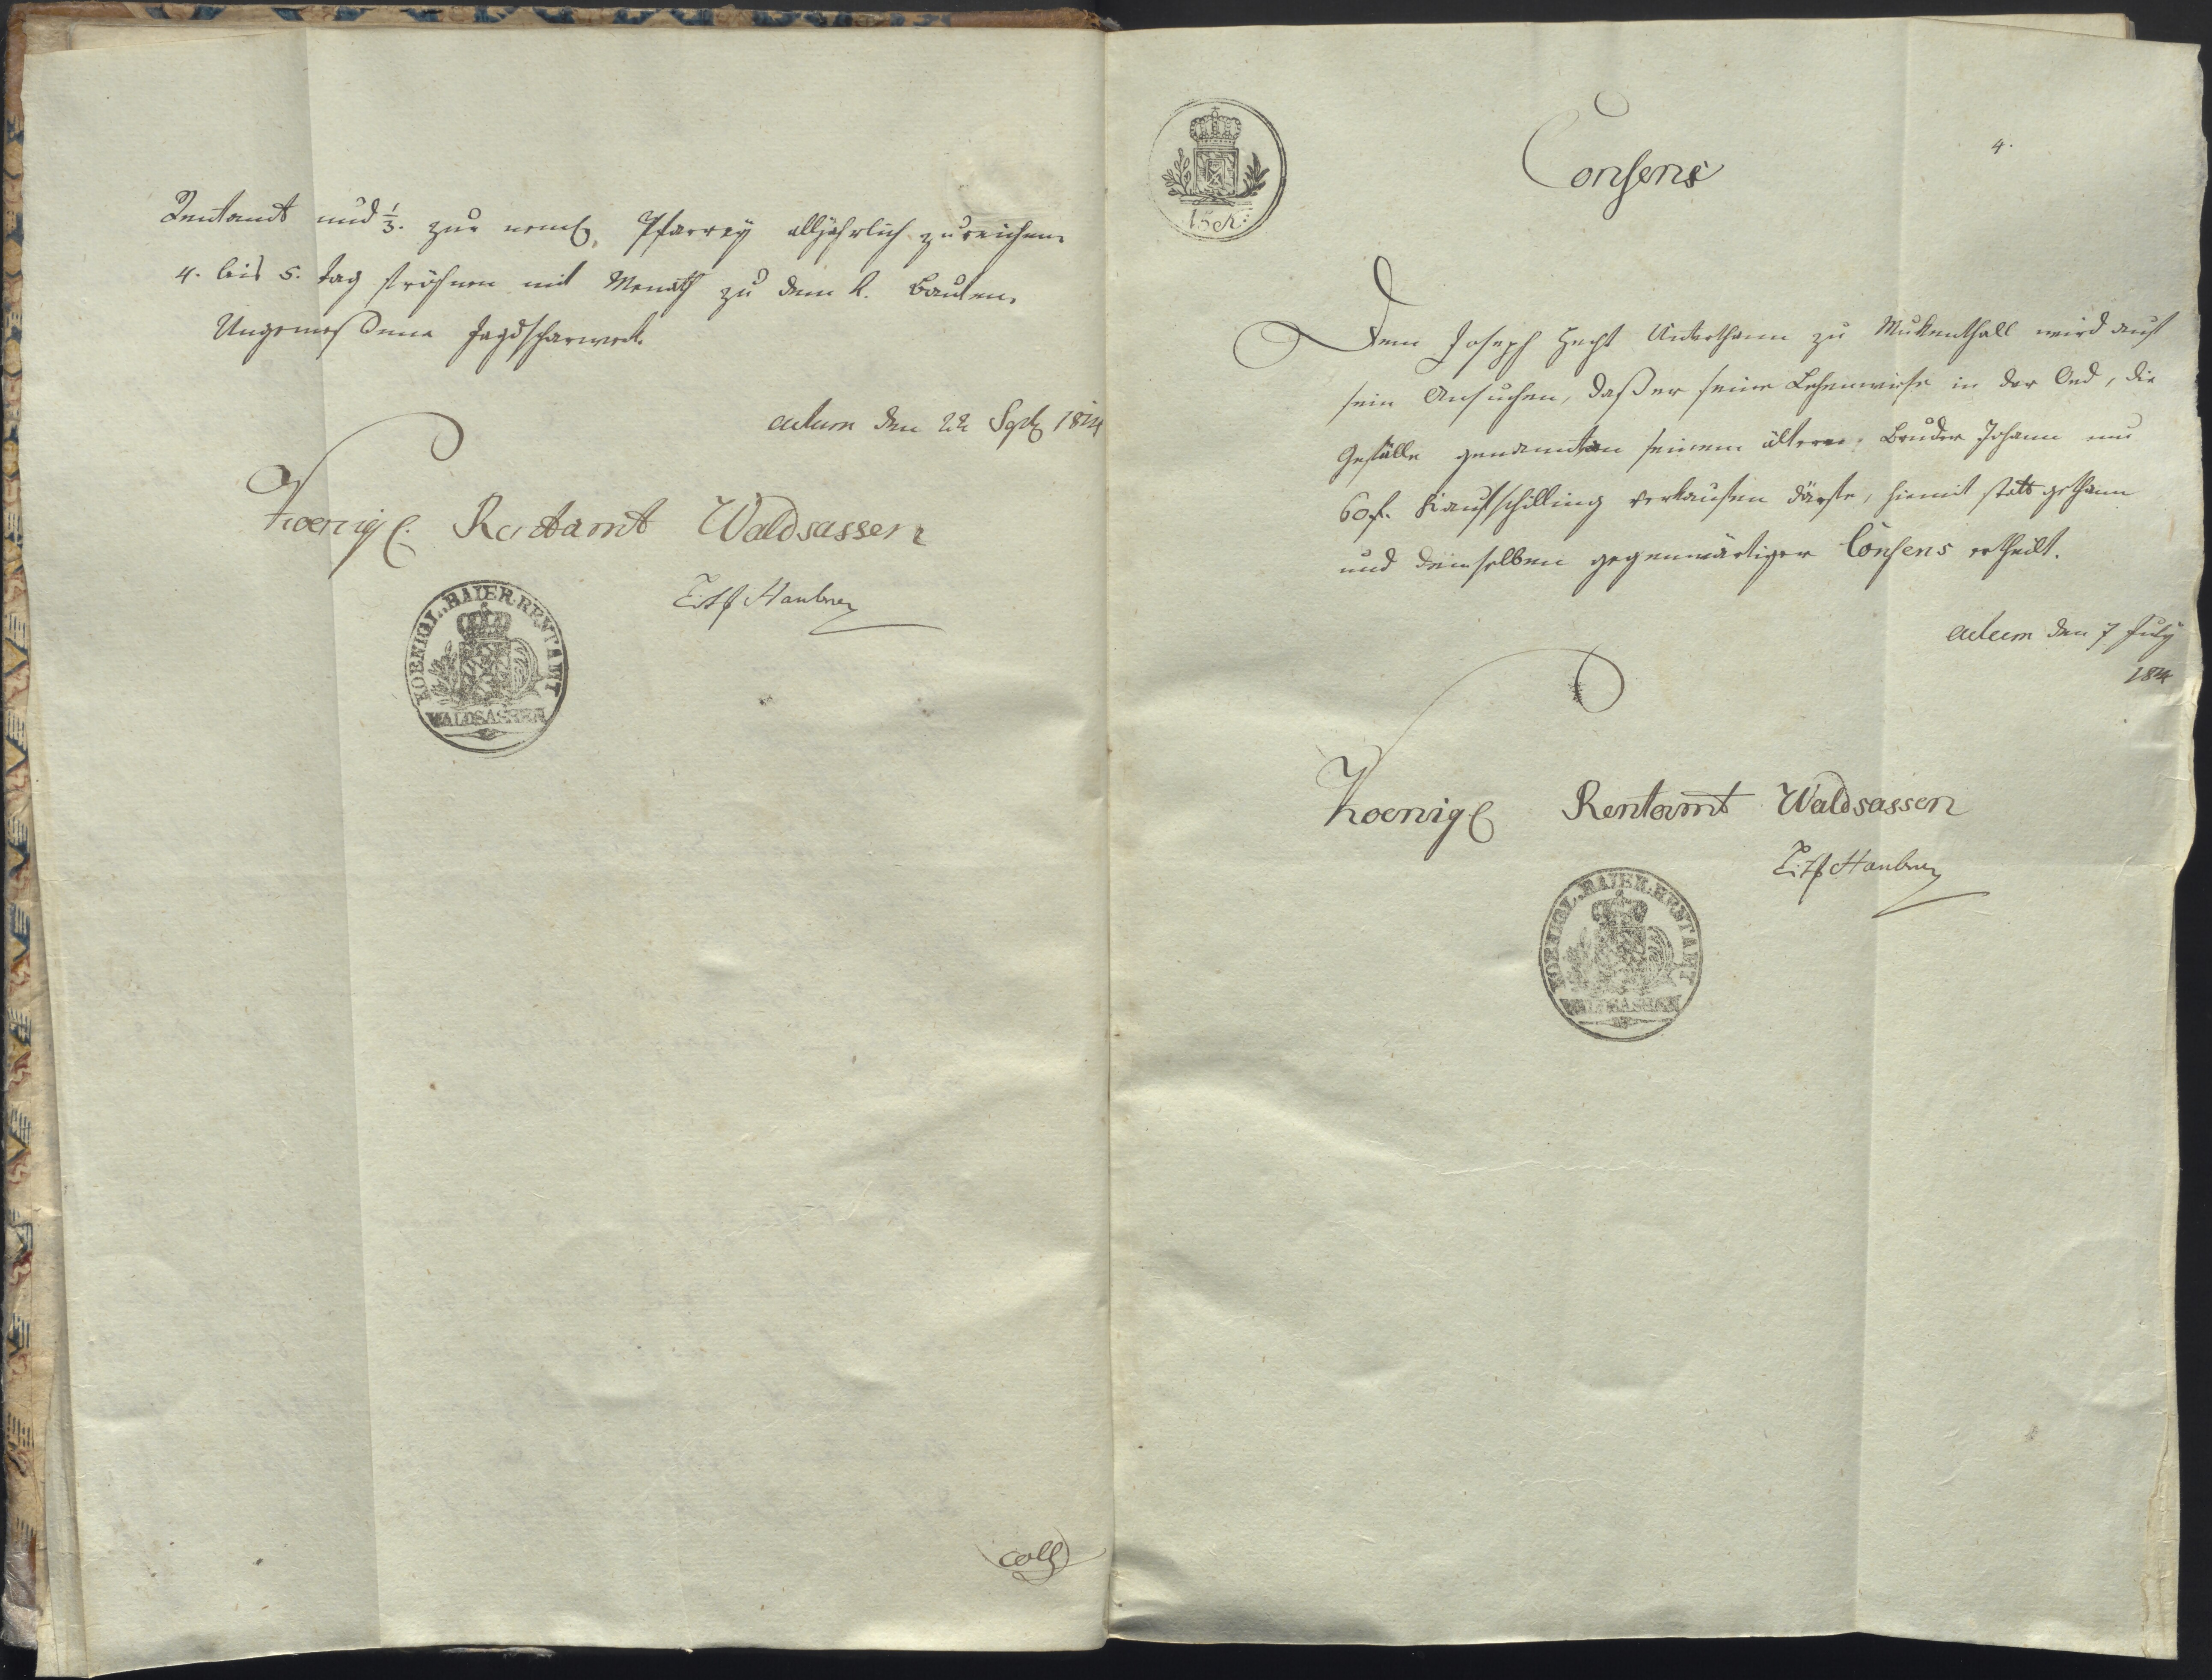 Rentamt und 1/3. zur neml. Pfarrey alljährlich zureichen.
4. bis 5. Tag fröhnen mit Menath zu dem k. Bauten.
Ungemeßene Jagdscharwerk.
actum den 22 Sept 1814
Koenigl. Rentamt Waldsassen
Haubner
KOENIGL. BAIER. RENTAMT
WALDSASSEN
coll
15 kr:
4.
Consens
Dem Joseph Hecht Unterthann zu Mukenthall wird auf
sein Ansuchen, daß er seine Lehenwiese in der Oed, die
Gefälle genannt an seinem ältern Bruder Johann um
60 f. Kaufschilling verkaufen dürfte, hiemit statt gethann
und demselben gegenwärtiger Consens ertheilt.
actum den 7 July
1814
Koenigl Rentamt Waldsassen
Haubner
KOENIGL. BAIER. RENTAMT
WALDSASSEN